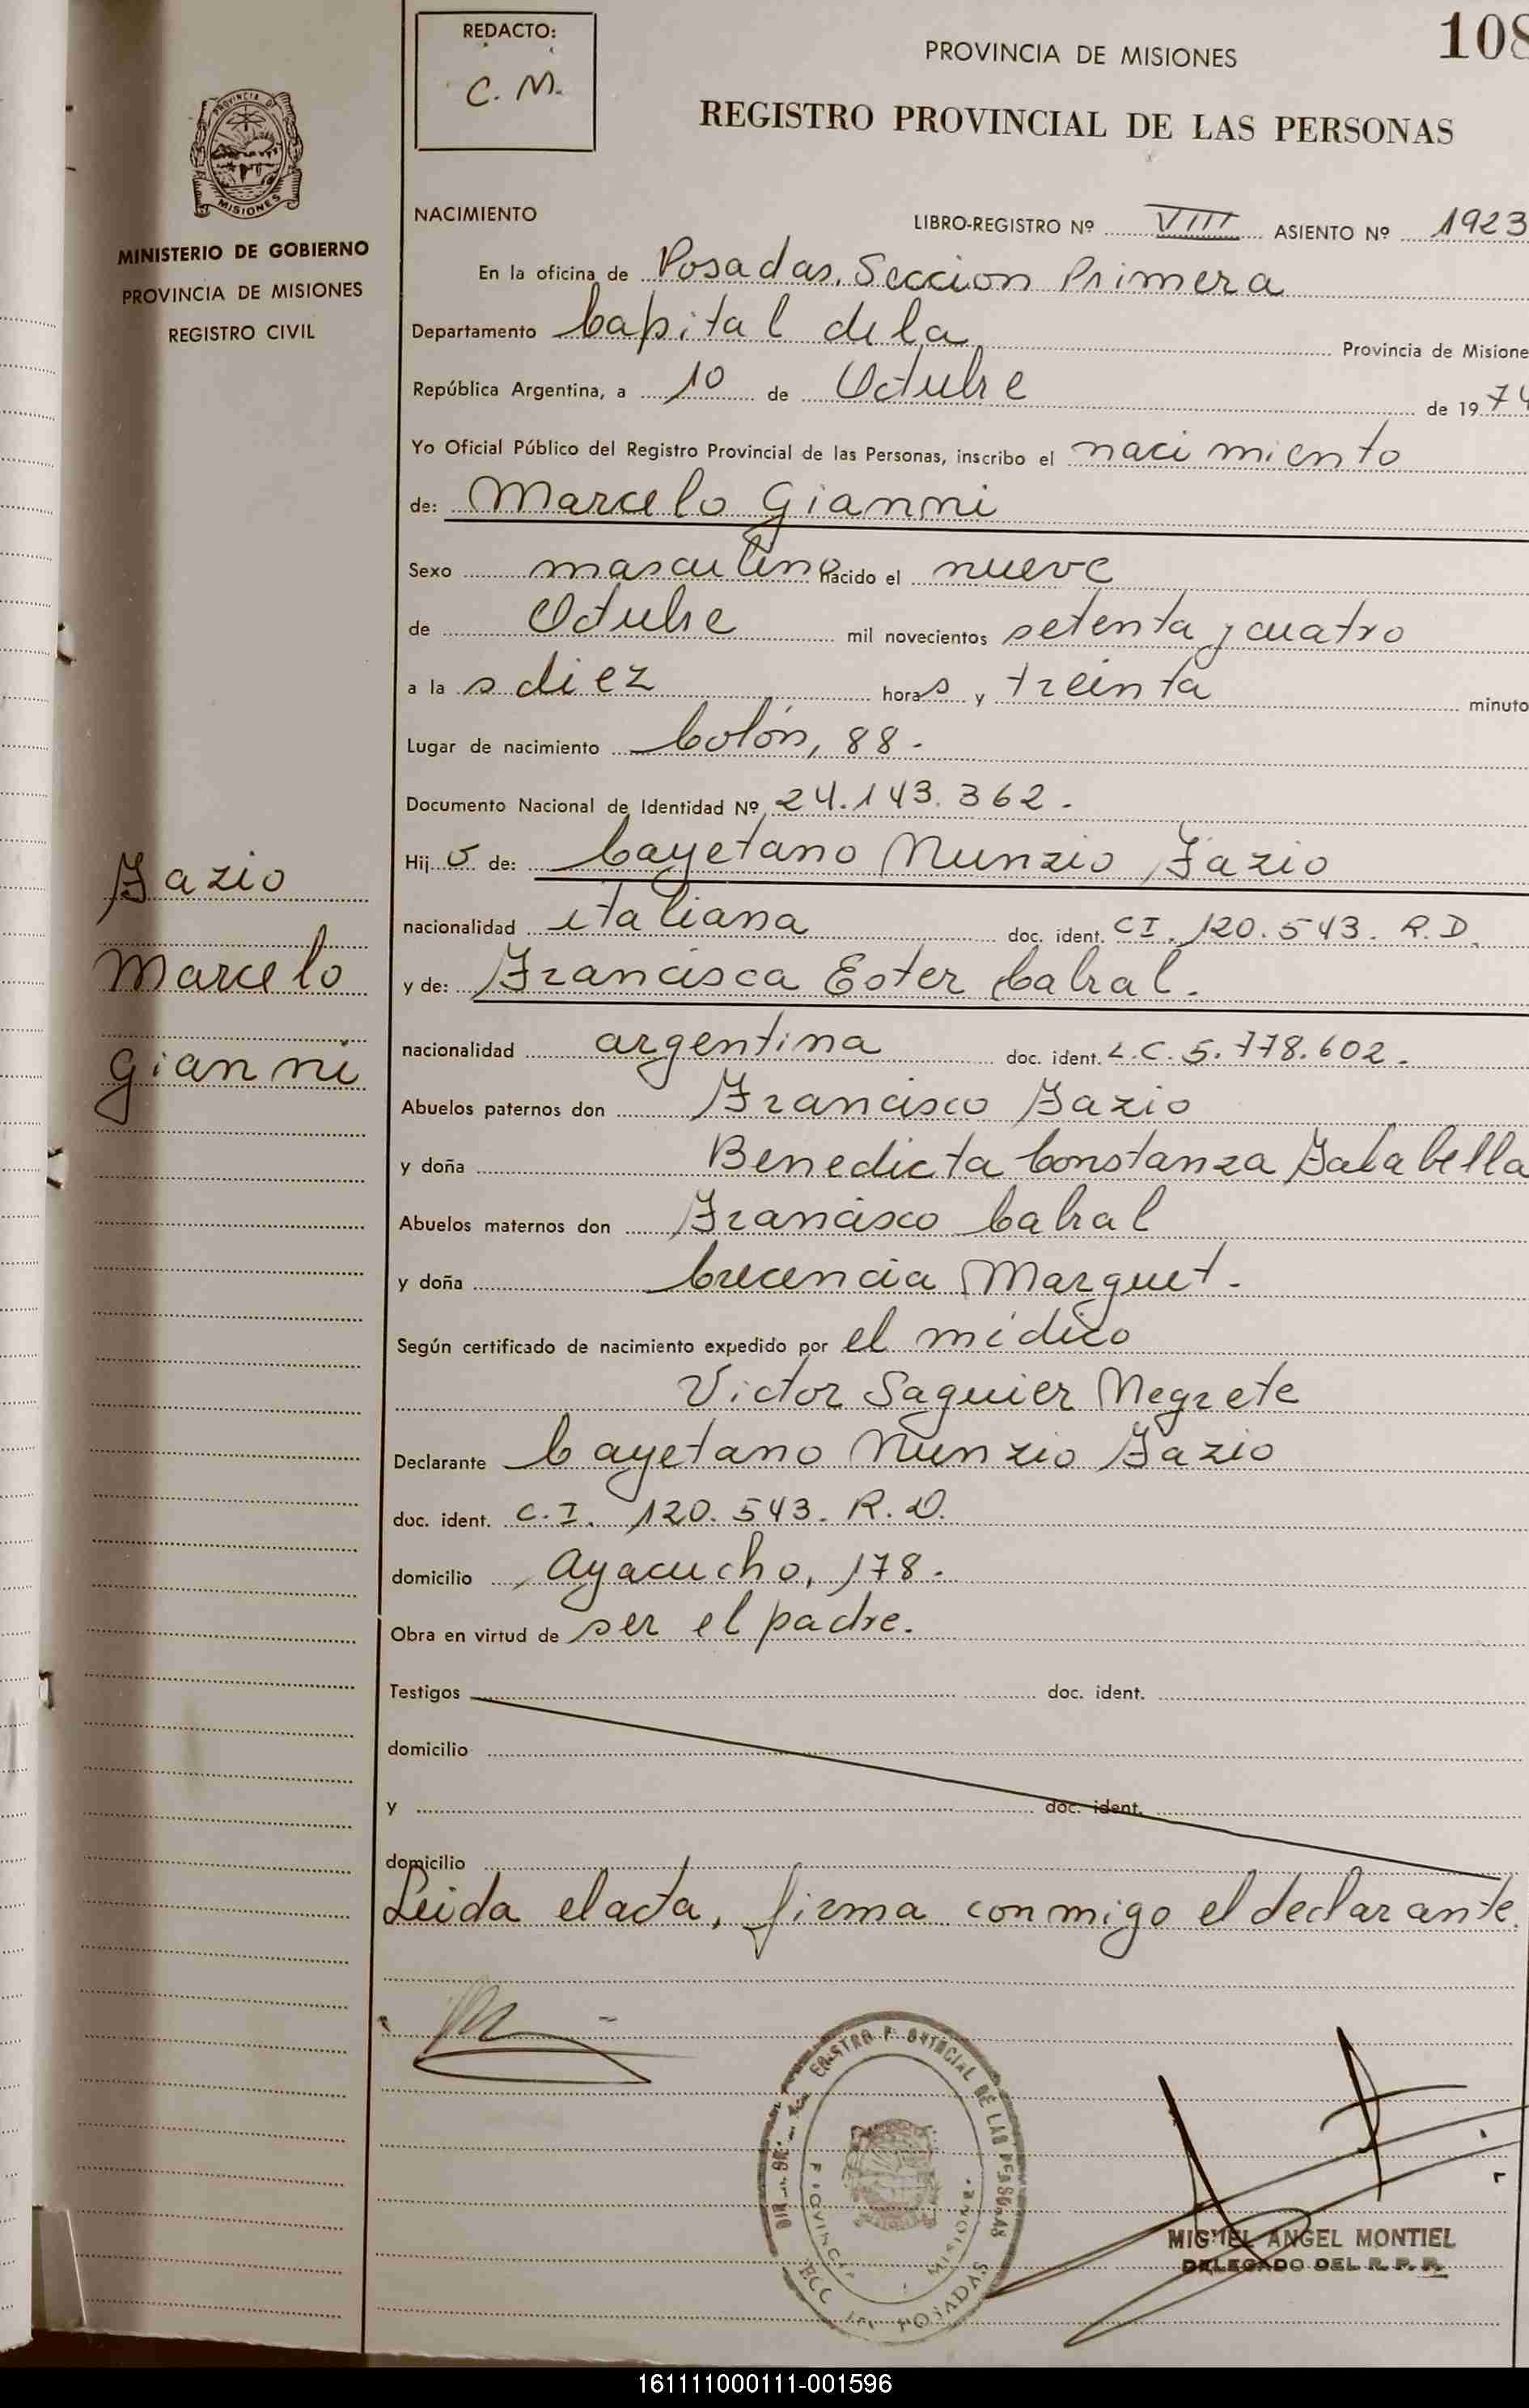 REDACTO:
C. M.
PROVINCIA DE MISIONES
108
REGISTRO PROVINCIAL DE LAS PERSONAS
PROVINCIA DE
MISIONES
MINISTERIO DE GOBIERNO
PROVINCIA DE MISIONES
REGISTRO CIVIL
NACIMIENTO
LIBRO-REGISTRO Nº VIII ASIENTO Nº 1923
En la oficina de Posadas, Seccion Primera
Departamento Capital de la Provincia de Misione
República Argentina, a 10 de Octubre de 1974
Yo Oficial Público del Registro Provincial de las Personas, inscribo el nacimiento
de: Marcelo Gianni
Sexo masculino nacido el nueve
de Octubre mil novecientos setenta y cuatro
a las diez horas y treinta minuto
Lugar de nacimiento Colón, 88.
Documento Nacional de Identidad Nº 24.143.362.
Hijo de: Cayetano Nunzio Fazio
nacionalidad italiana doc. ident. CI. 120.543. R.D.
y de: Francisca Ester Cabral.
nacionalidad argentina doc. ident. L.C. 5.778.602.
Abuelos paternos don Francisco Fazio
y doña Benedicta Constanza Falabella
Abuelos maternos don Francisco Cabral
y doña Crecencia Marquet.
Según certificado de nacimiento expedido por el médico
Victor Saguier Negrete
Declarante Cayetano Nunzio Fazio
doc. ident. C.I. 120.543. R.D.
domicilio Ayacucho, 178.
Obra en virtud de ser el padre.
Testigos doc. ident.
domicilio
y doc. ident.
domicilio
Leida el acta, firma conmigo el declarante.
Fazio
Marcelo
Gianni
MIGUEL ANGEL MONTIEL
DELEGADO DEL R. P. P.
161111000111-001596